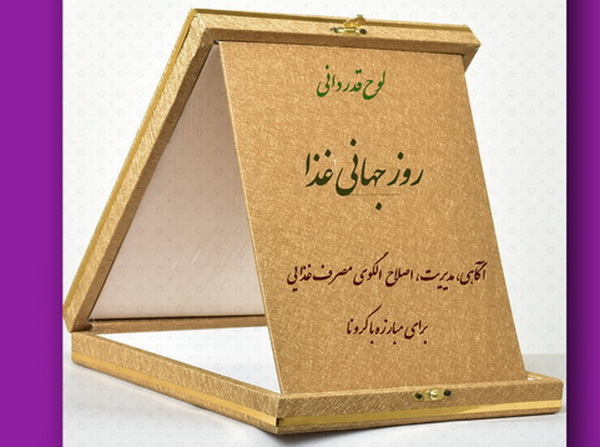 لوح قدردانی
روز جهانی غذا
آگاهی، مدیریت، اصلاح الگوی مصرف غذایی
برای مبارزه با کرونا